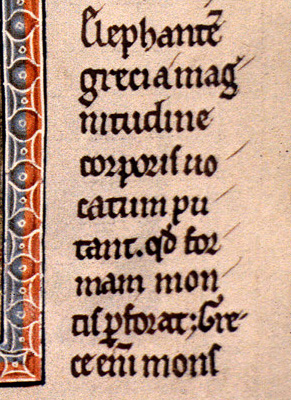 Elephantē
greci a mag
nitudine
corporis uo
catum pu
tant. qđ for
mam mon
tis ꝑforat: Gre-
ce eni̅ mons